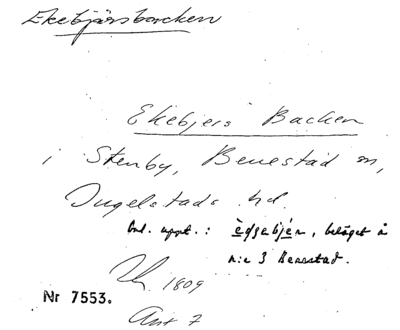 Ekebjärsbacken
Ekebjers Backen
i Stenby, Benestad sn,
Ingelstads hd.
Enl. uppt.: èdgebjén, beläget å
n:r 3 Benestad.
1809
Nr 7553.
Ant 7